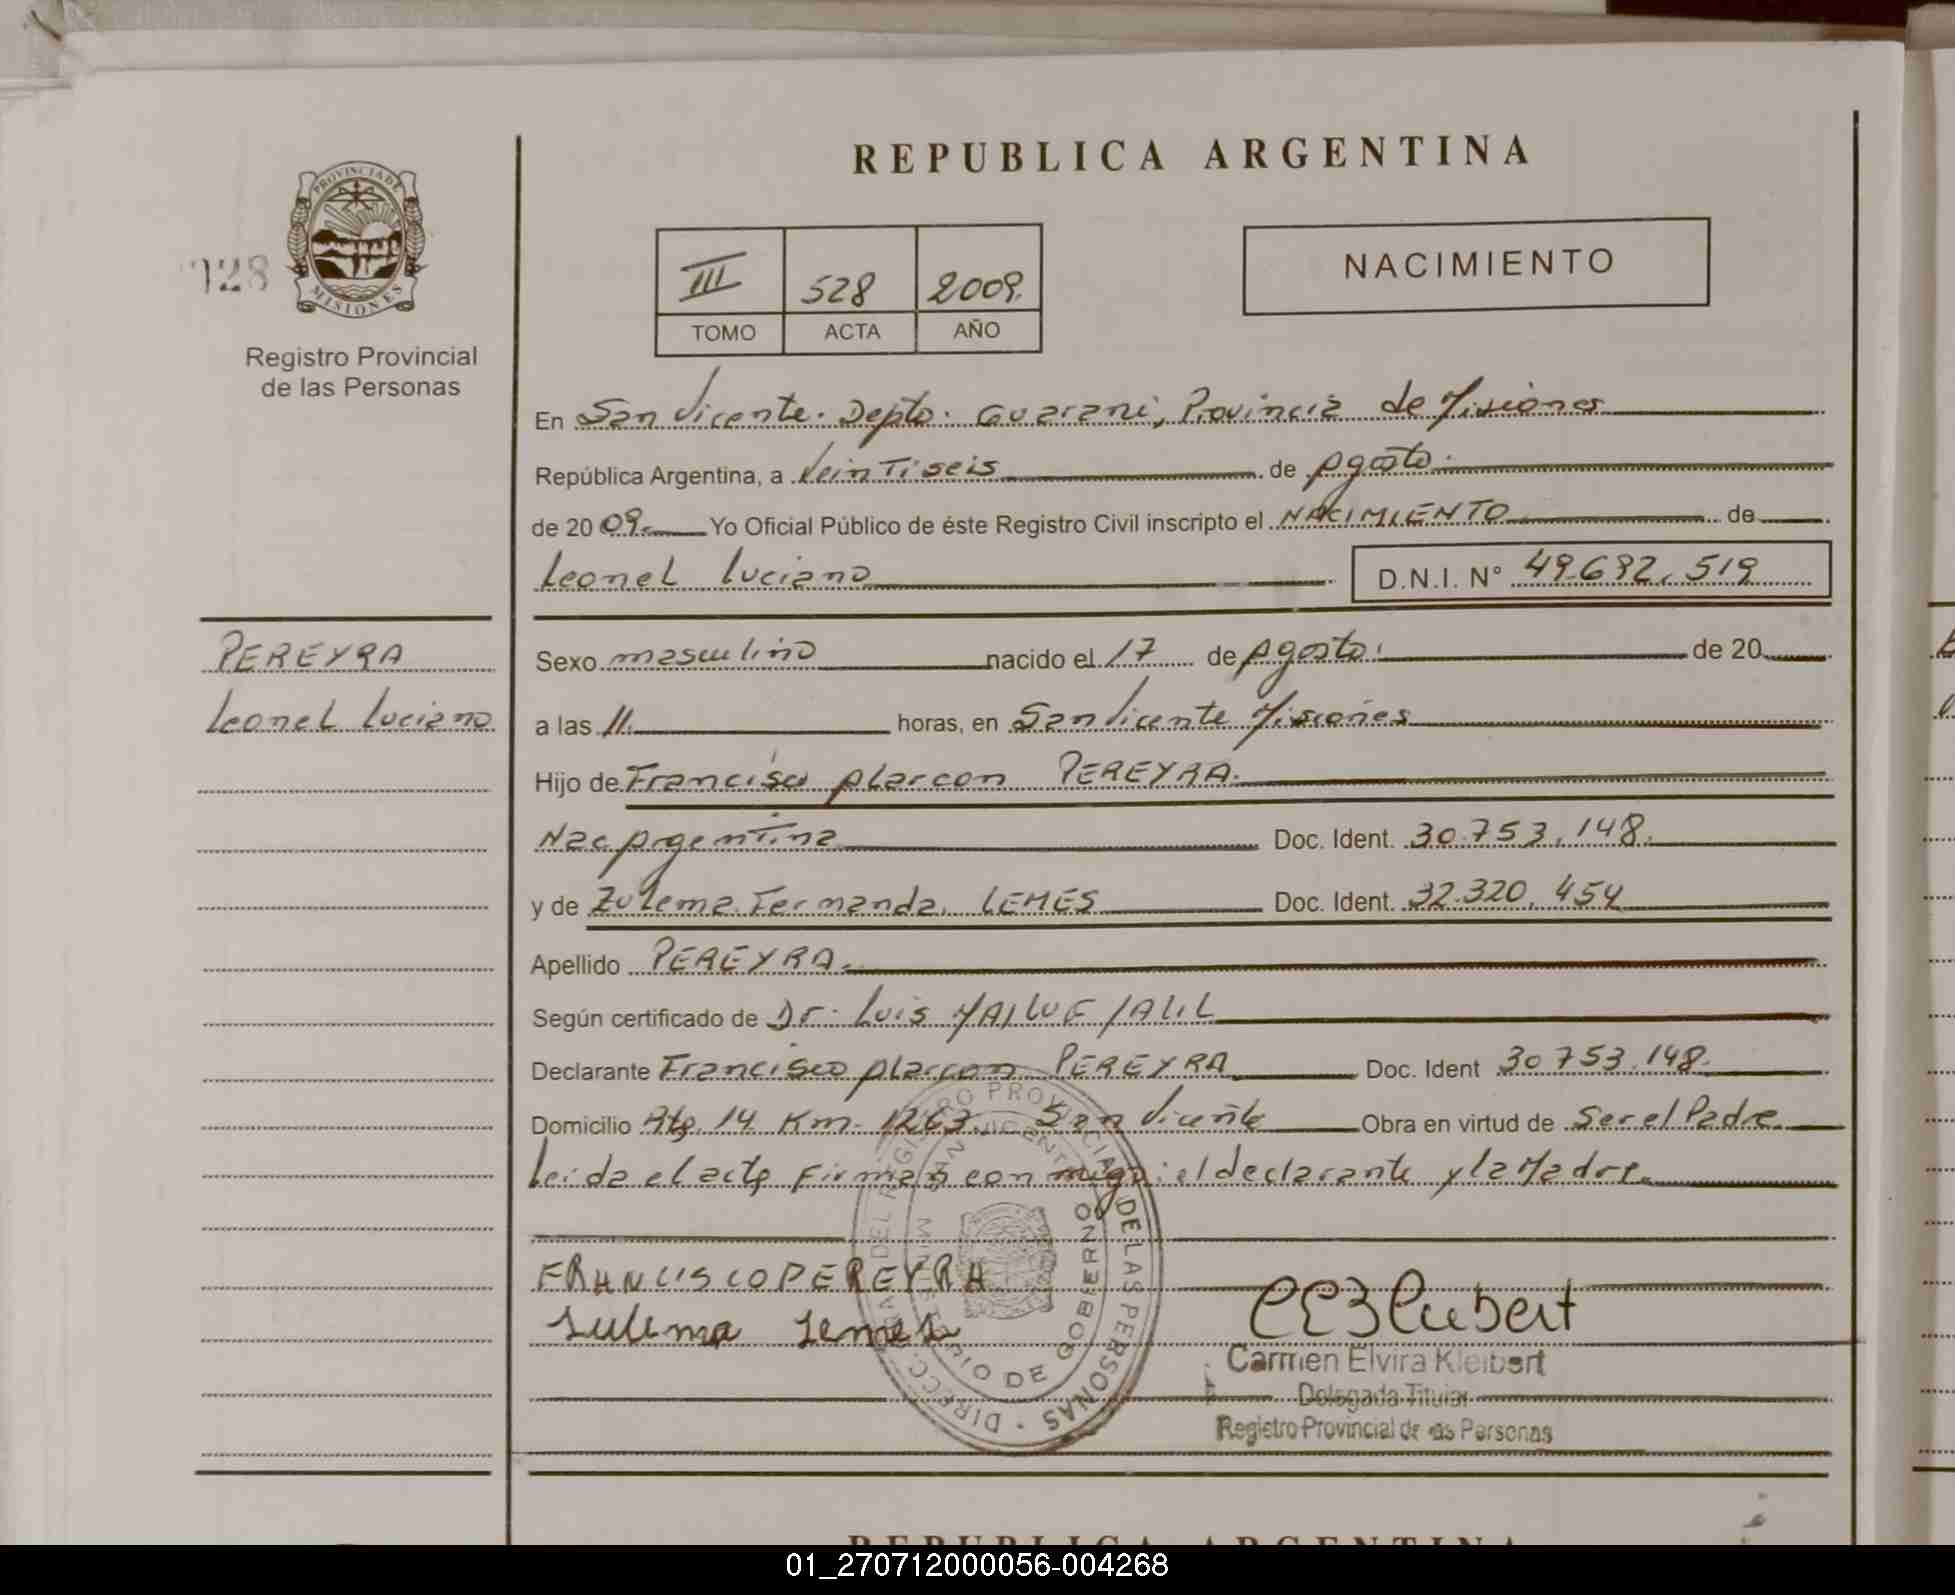 REPUBLICA ARGENTINA
PROVINCIA DE
MISIONES
128
Registro Provincial
de las Personas
III 528 2009
TOMO ACTA AÑO
NACIMIENTO
En San Vicente. Depto. Guarani, Provincia de Misiones
República Argentina, a Veintiseis de Agosto.
de 20 09. Yo Oficial Público de éste Registro Civil inscripto el NACIMIENTO de
Leonel Luciano D.N.I. N° 49.692.519
PEREYRA
Leonel Luciano
Sexo masculino nacido el 17 de Agosto. de 20
a las 11. horas, en San Vicente Misiones
Hijo de Francisco Alarcon PEREYRA.
Nac Argentina Doc. Ident. 30.753.148.
y de Zulema Fernanda LEMES Doc. Ident. 32.320.454
Apellido PEREYRA.
Según certificado de Dr. Luis
Declarante Francisco Alarcon PEREYRA Doc. Ident 30 753.148.
Domicilio Rta 14 Km. 1263. San Vicente Obra en virtud de Ser el Padre.
Leida el acta Firman con migo: el declarante y la Madre.
DIRECC. DEL REGISTRO PROVINCIAL DE LAS PERSONAS
SAN VICENTE
MINISTERIO DE GOBIERNO
FRANCISCO PEREYRA
Sulema Lemes
Carmen Elvira Kleibert
Delegada Titular
Registro Provincial de las Personas
REPUBLICA ARGENTINA
01_270712000056-004268